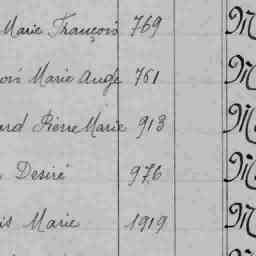 Marie François 769 M
ois Marie Ange 761 M
ard Pierre Marie 913 M
Desiré 976 M
is Marie 1919 M